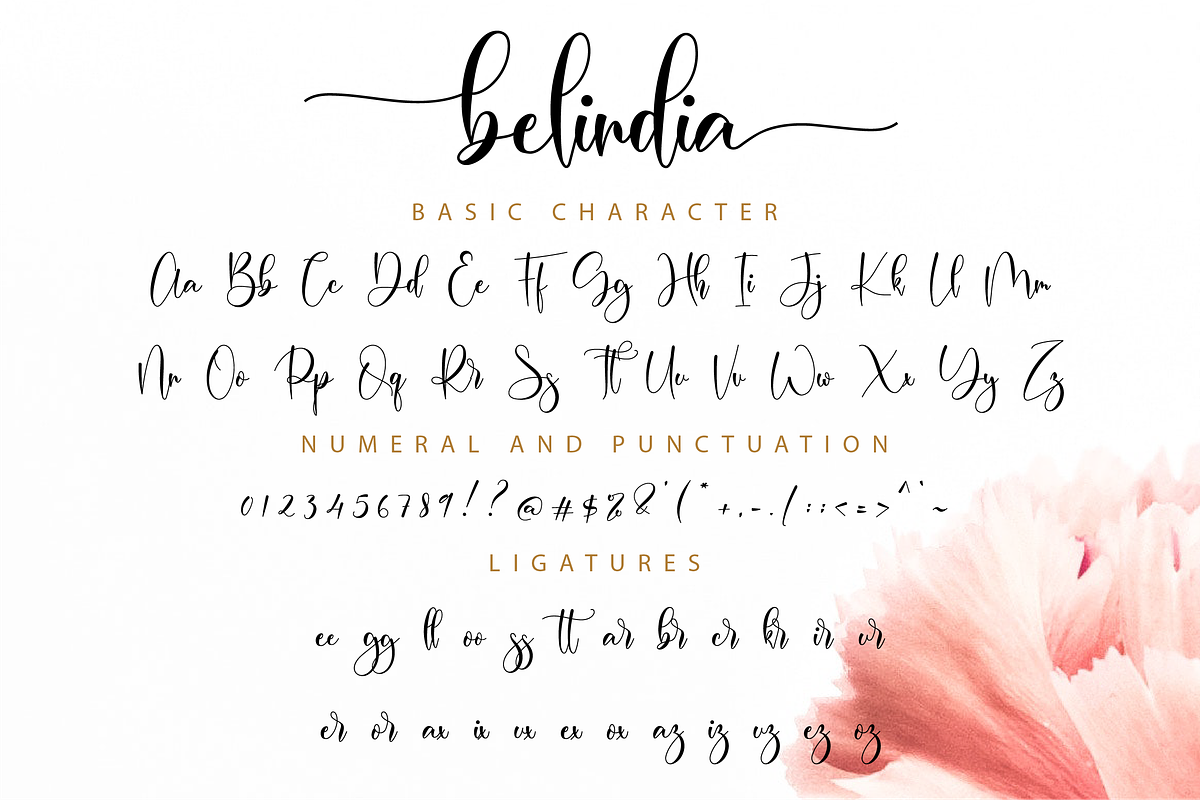 belindia
BASIC CHARACTER
Aa Bb Cc Dd Ee Ff Gg Hh Ii Jj Kk Ll Mm
Nn Oo Pp Qq Rr Ss Tt Uu Vv Ww Xx Yy Zz
NUMERAL AND PUNCTUATION
0123456789!?@#$%&'(*+,-./:;<=>^`~
LIGATURES
ee gg ll oo ss tt ar br cr kr ir ur
er or ax ix ux ex ox az iz uz ez oz